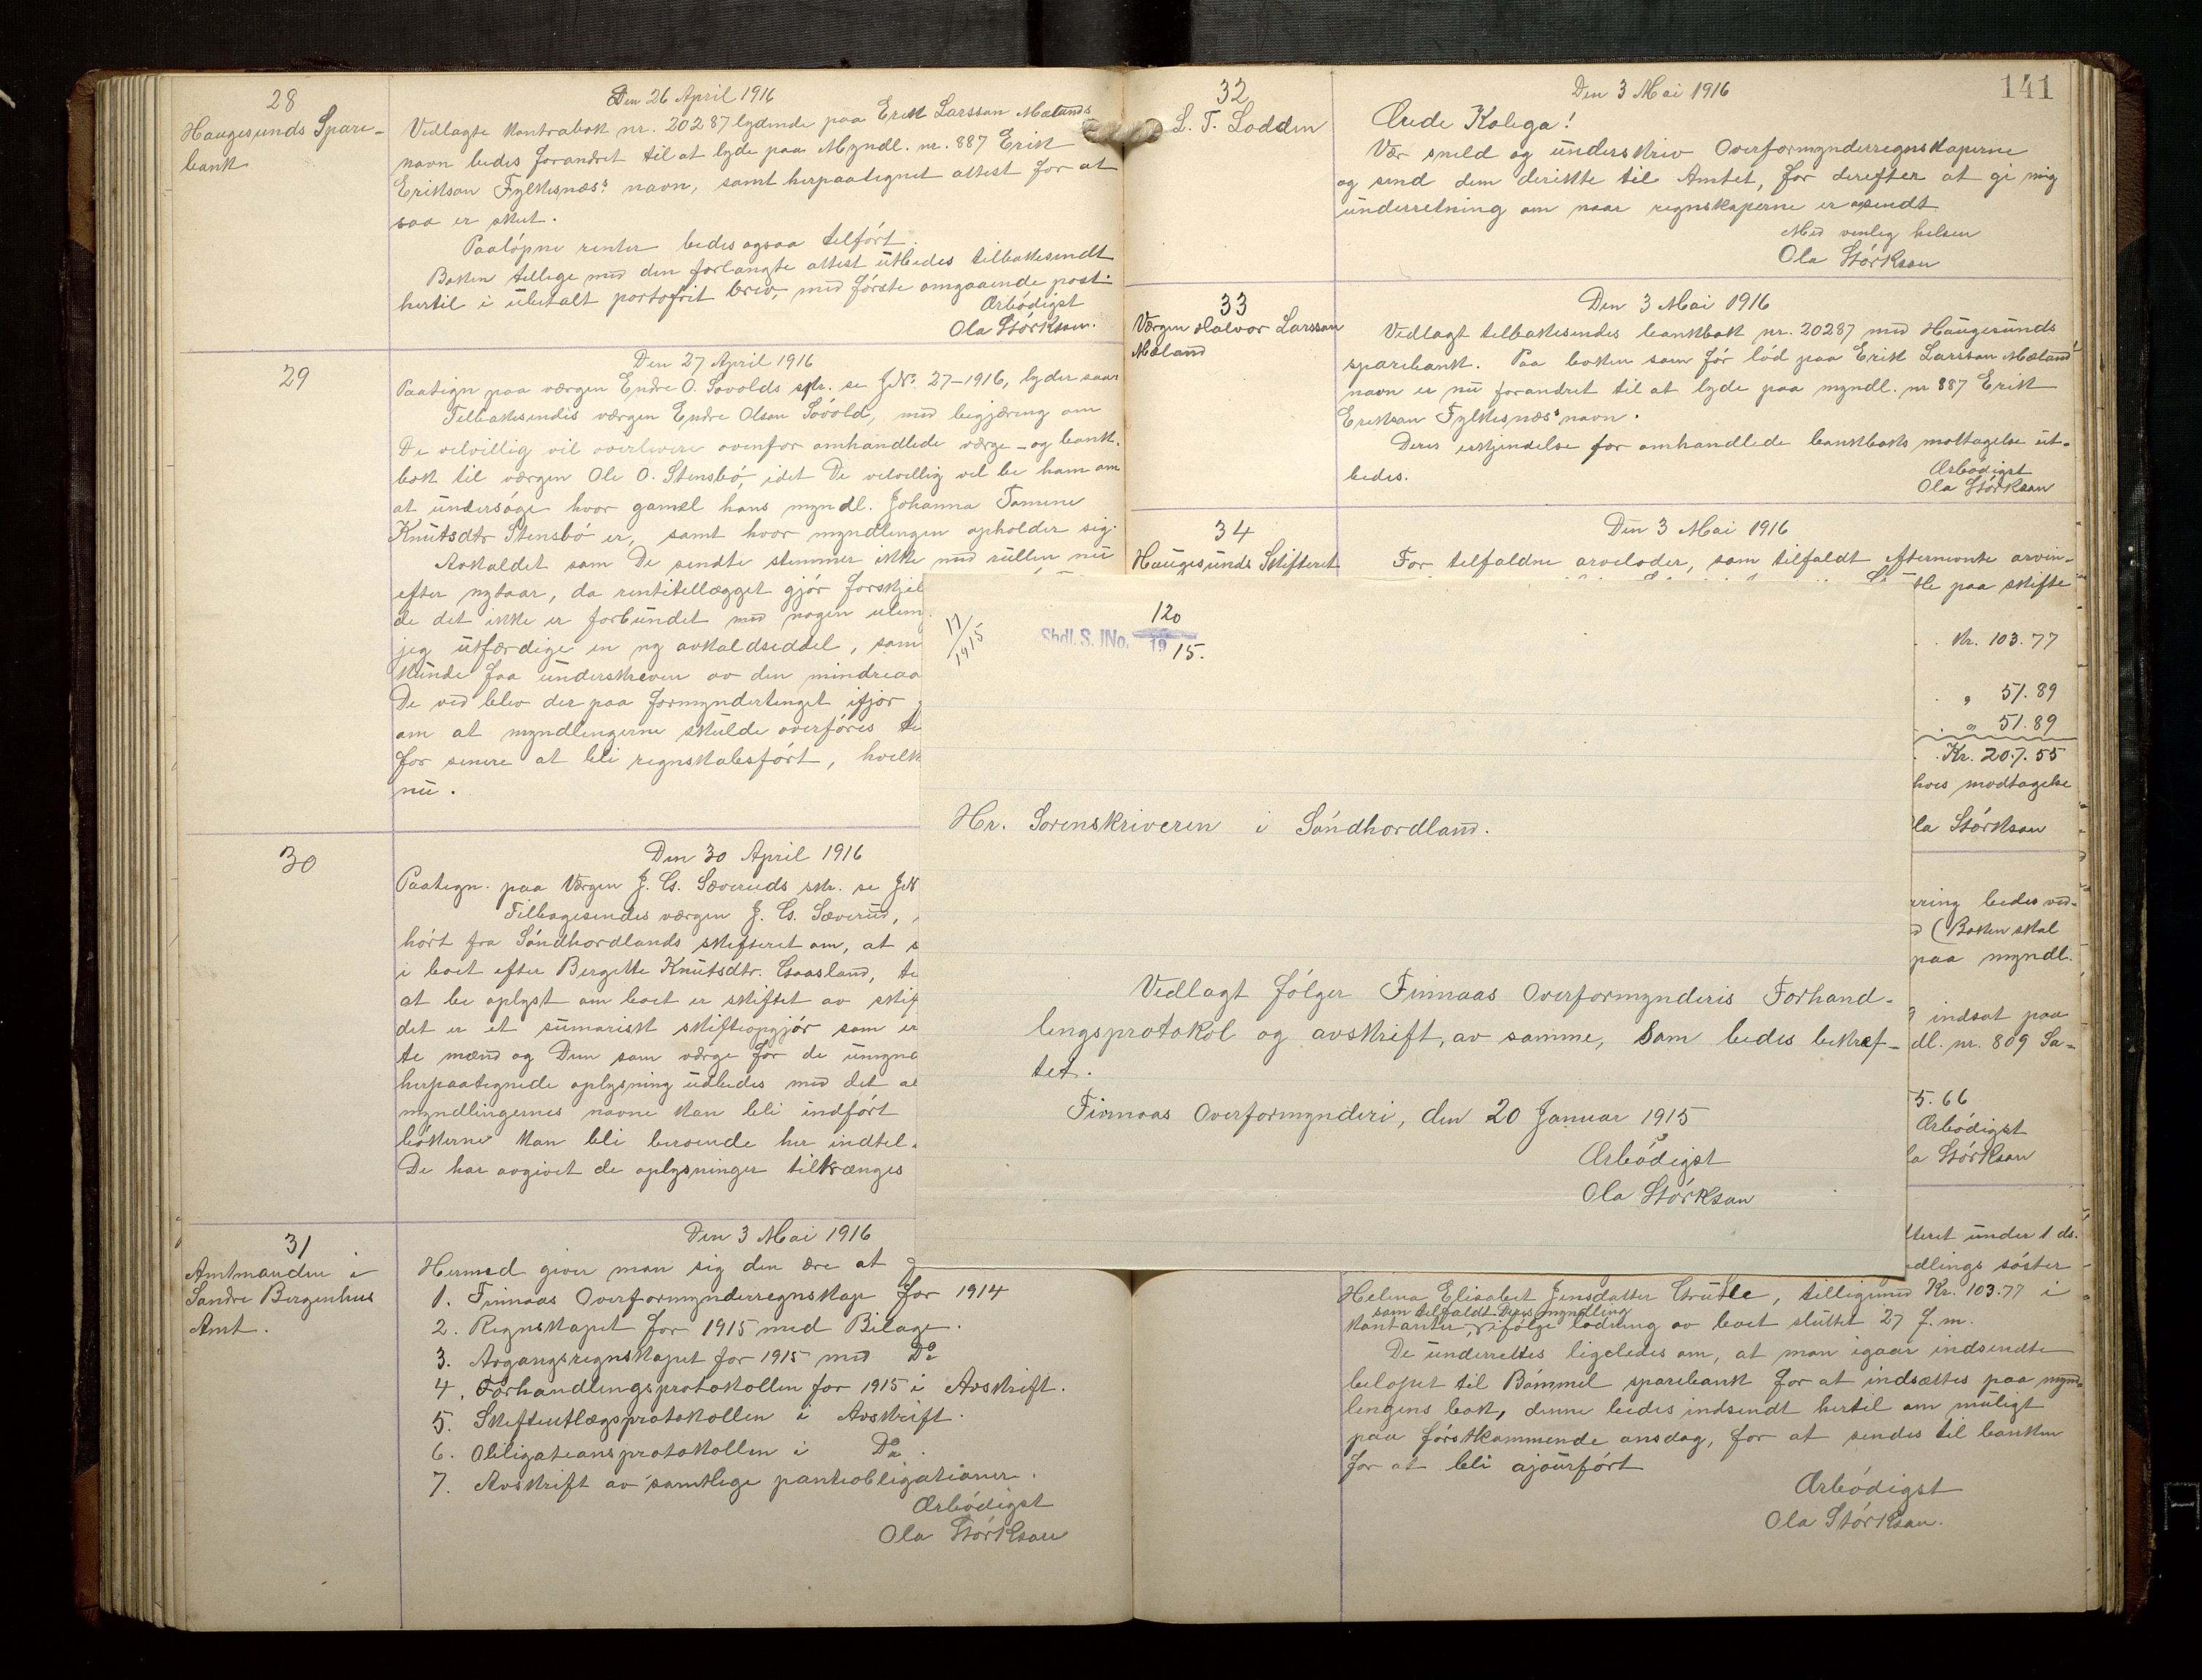 28
Haugesunds Spare-
bank
Den 26 April 1916
Vedlagte kontrabok nr. 20287 lydende paa Erik Larsson Mælands
navn bedes forandret til at lyde paa Myndl. nr. 887 Erik
Erikson Fylkesnæs's navn, samt herpaategnet attest for at
saa er skeet.
Paaløpne renter bedes ogsaa tilført.
Boken tillige med den forlangte attest utbedes tilbakesendt
hertil i ubetalt portofrit brev, med første omgaaende post.
Ærbødigst
Ola Størkson.
29
Den 27 April 1916
Paategn paa værgen Endre O. Sovolds skr. se JN⁰. 27-1916, lyder saa:
Tilbakesendes værgen Endre Olson Sovold, med begjæring om
De velvillig vil overlevere ovenfor omhandlede værge- og bank-
bok til værgen Ole O. Stensbø, idet De velvillig vil be ham om
at undersøge hvor gamel hans myndl. Johanna Tomine
Knutsdtr Stensbø er, samt hvor myndlingen opholder sig.
Avkaldet som De sendte stemmer ikke med rullen nu
efter nytaar, da rentetillægget gjør forskjel
de det ikke er forbundet med nogen ulem
jeg utfærdige en ny avkaldseddel, som
kunde faa underskreven av den mindreaa
De ved blev der paa formyndertinget ifjor
om at myndlingerne skulde overføres te
for senere at bli regnskabsført, hvelk
nu.
30
Den 30 April 1916
Paategn. paa Værgen J. Gs. Sæveruds skr. se JN
Tilbagesendes værgen J. Gs. Sæverud,
hørt fra Søndhordlands skifteret om, at s
i boet efter Bergitte Knutsdtr. Gaasland, te
at be oplyst om boet er skiftet av skif
det er et sumarisk skifteopgjør som er
te mænd og Dem som værge for de umynd
herpaategnede oplysning udbedes med det al
myndlingernes navne kan bli indført
bøkerne kan bli beroende her indtil
De har avgivet de oplysninger tiltrænges
31
Amtmanden i
Søndre Bergenhus
Amt.
Den 3 Mai 1916
Hermed giver man sig den ære at
1. Finnaas Overformynderregnskap for 1914
2. Regnskapet for 1915 med Bilage.
3. Avgangsregnskapet for 1915 med D⁰
4. Forhandlingsprotokollen for 1915 i Avskrift.
5. Skifteutlægsprotokollen i Avskrift.
6. Obligationsprotokollen i D⁰.
7. Avskrift av samtlige panteobligationer.
Ærbødigst
Ola Størkson
141
32
L. T. Lodden
Den 3 Mai 1916
Ærede Kolega!
Vær sneld og underskriv Overformynderregnskaperne
og send dem direkte til Amtet, for derefter at gi mig
underretning om naar regnskaperne er avsendt
Med venlig helsen
Ola Størkson
33
Værgen Halvor Larsson
Mæland
Den 3 Mai 1916
Vedlagt tilbakesendes bankbok nr. 20287 med Haugesunds
sparebank. Paa boken som før lød paa Erik Larsson Mælands
navn er nu forandret til at lyde paa myndl. nr 887 Erik
Erikson Fylkesnæs's navn.
Deres erkjendelse for omhandlede bankboks mottagelse ut-
bedes.
Ærbødigst
Ola Størkson
34
Haugesunds Skifteret
Den 3 Mai 1916
For tilfaldne arvelodder, som tilfaldt efternevnte arvin-
tle paa skifte
Kr. 103.77
" 51.89
" 51.89
Kr. 207.55
hvis modtagelse
la Størkson
æring bedes ved-
d (Boken skal
paa myndl.
indsat paa
dl. nr. 809 Sa-
5.66
Ærbødigst
la Størkson
fteret under 1 ds.
ndlings søster
Helena Elisabet Jensdatter Grutle, tilligemed Kr. 103.77 i
som tilfaldt Deres myndling
kontanter, ifølge lodning av boet sluttet 27 f. m.
De underrettes ligeledes om, at man igaar indsendte
beløpet til Bømmel sparebank for at indsættes paa mynd-
lingens bok, denne bedes indsendt hertil om muligt
paa førstkommende onsdag, for at sendes til banken
for at bli ajourført
Ærbødigst
Ola Størkson.
17/1915
120
Shdl. S. JNo. 19 15.
Hr. Sorenskriveren i Søndhordland.
Vedlagt følger Finnaas Overformynderis Forhand-
lingsprotokol og avskrift, av samme, som bedes bekræf-
tet.
Finnaas Overformynderi, den 20 Januar 1915
Ærbødigst
Ola Størkson